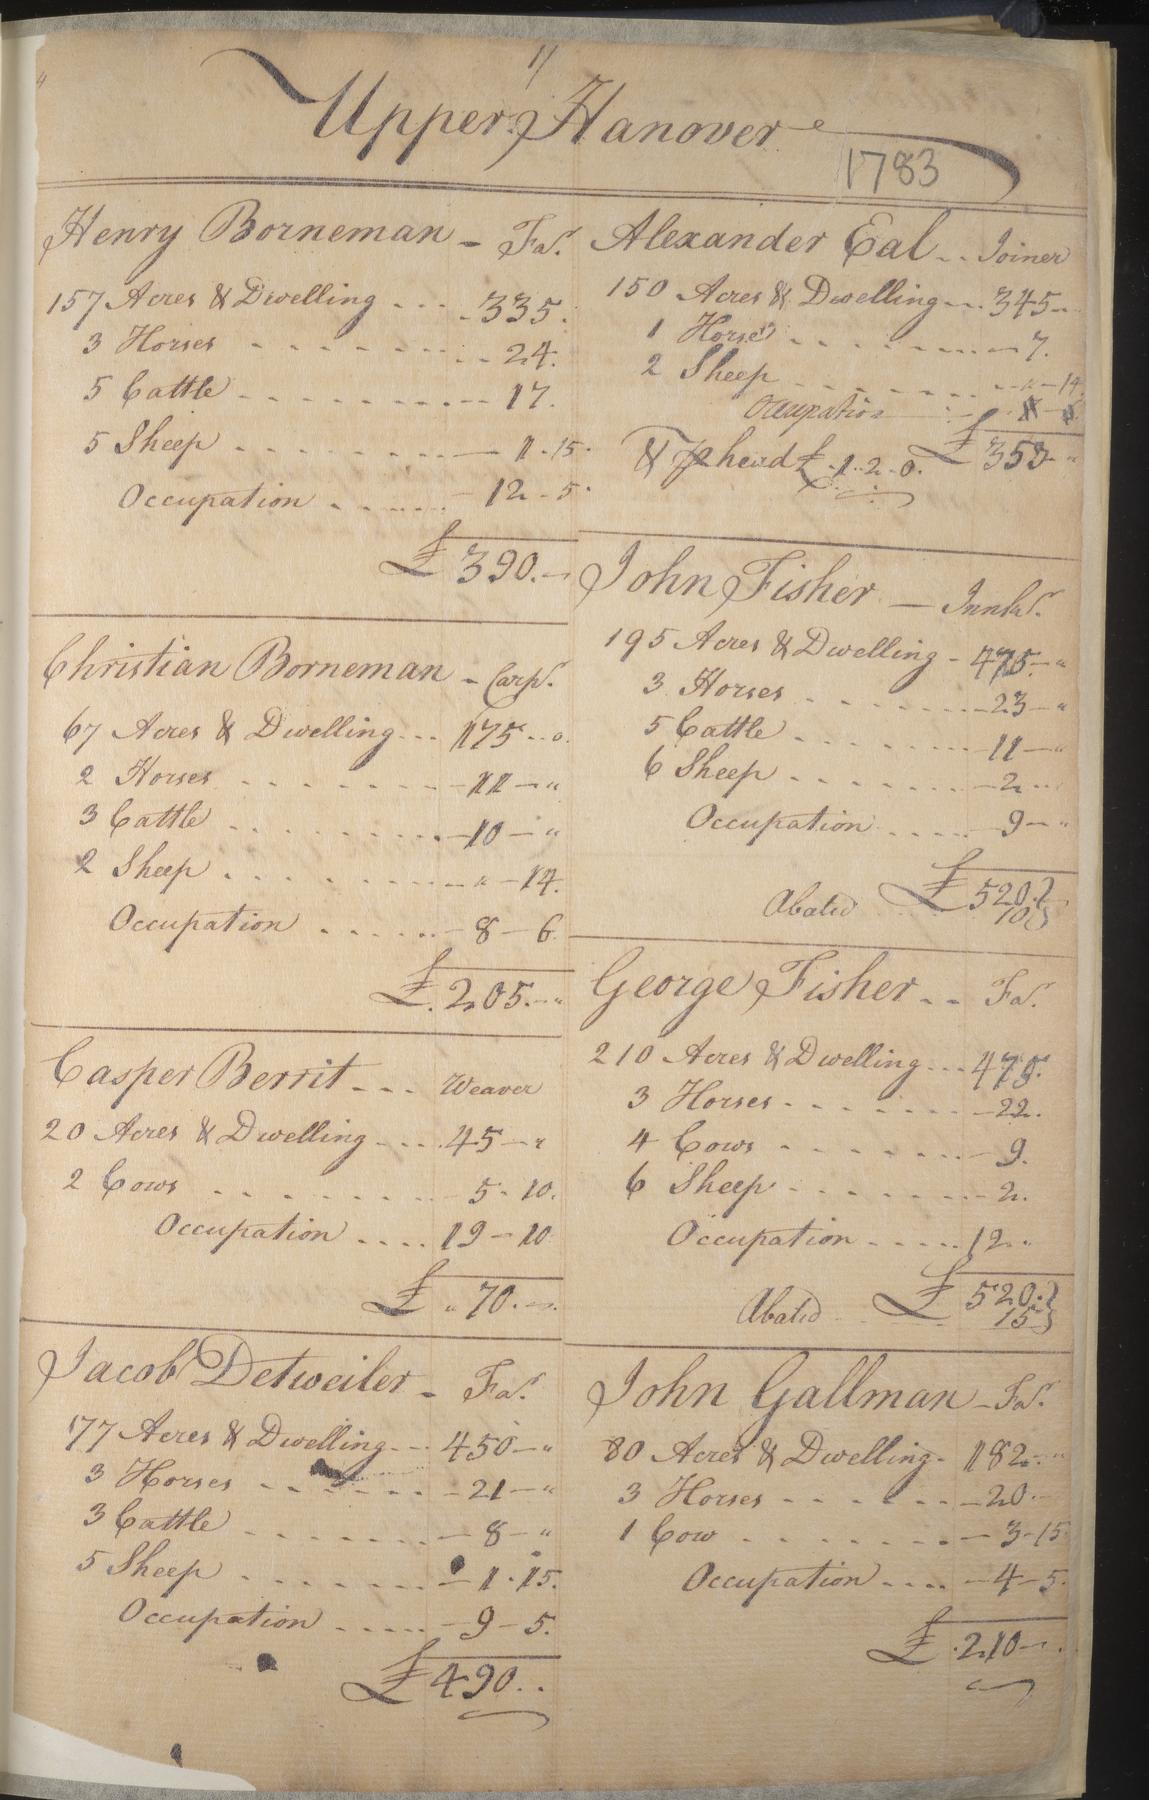 1/
Upper Hanover
1783
Henry Borneman - Far.
157 Acres & Dwelling - - - 335.
3 Horses - - - 24.
5 Cattle - - - 17.
5 Sheep - - - 1 - 15.
Occupation - - - 12 - 5.
£ 390. -
Christian Borneman - Carp.
67 Acres & Dwelling - - - 175 - - 0.
2 Horses - - - 11 - "
3 Cattle - - - 10 - "
2 Sheep - - - " - 14.
Occupation - - - 8 - 6
£. 205. - "
Casper Berrit - - - Weaver
20 Acres & Dwelling - - - 45 - "
2 Cows - - - 5 - 10.
Occupation - - - 19 - 10
£ " 70. -
Jacob Detweiler - Far.
177 Acres & Dwelling - - - 450 - "
3 Horses - - - 21 - "
3 Cattle - - - 8 - "
5 Sheep - - - 1 - 15.
Occupation - - - 9 - 5.
£ 490. .
Alexander Eal - - Joiner
150 Acres & Dwelling - - - 345 - -
1 Horse - - - 7.
2 Sheep - - - " - 14
Occupation
& p head £ - 1 - 2 - 0. £ 353 - "
John Fisher - Innkr.
195 Acres & Dwelling - 475 - "
3 Horses - - - 23 - "
5 Cattle - - - 11 - "
6 Sheep - - - 2 - "
Occupation - - - 9 - "
£ 520. }
Abated 10 }
George Fisher - - Far.
210 Acres & Dwelling - - - 475.
3 Horses - - - 22.
4 Cows - - - 9.
6 Sheep - - - 2.
Occupation - - - 12 - "
£ 520. }
Abated 15 }
John Gallman - Far.
80 Acres & Dwelling - 182 - "
3 Horses - - - 20 -
1 Cow - - - 3 - 15
Occupation - - - 4 - 5.
£ 210 - -